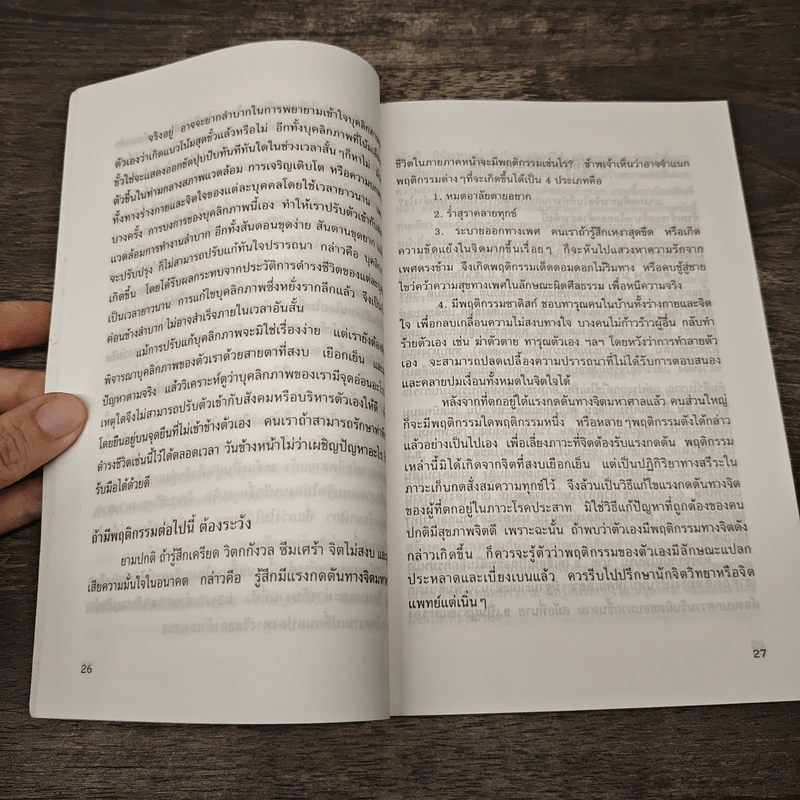 จริงอยู่ อาจจะยากลำบากในการพยายามเข้าใจบุคลิกภาพ
ตัวเองว่าเกิดแนวโน้มสุดขั้วแล้วหรือไม่ อีกทั้งบุคลิกภาพที่โน้ม
ขั้วใช่จะแสดงออกชัดปุบปับทันทีทันใดในช่วงเวลาสั้นๆก็หาไม่
ตัวขึ้นในท่ามกลางสภาพแวดล้อม การเจริญเติบโต หรือความ
ทั้งทางร่างกายและจิตใจของแต่ละบุคคลโดยใช้เวลายาวนาน
บางครั้ง การบงการของบุคลิกภาพนี้เอง ทำให้เราปรับตัวเข้ากับ
แวดล้อมการทำงานลำบาก อีกทั้งสันดอนขุดง่าย สันดานขุดยาก
จะปรับปรุง ก็ไม่สามารถปรับแก้ทันใจปรารถนา กล่าวคือ
เกิดขึ้น โดยได้รับผลกระทบจากประวัติการดำรงชีวิตของแต่ละ
เป็นเวลายาวนาน การแก้ไขบุคลิกภาพซึ่งหยั่งรากลึกแล้ว จึงเป็น
ค่อนข้างลำบาก ไม่อาจสำเร็จภายในเวลาอันสั้น
แม้การปรับแก้บุคลิกภาพจะมิใช่เรื่องง่าย แต่เรายังต้อง
พิจารณาบุคลิกภาพของตัวเราด้วยสายตาที่สงบ เยือกเย็น และ
ปัญหาตามจริง แล้ววิเคราะห์ดูว่าบุคลิกภาพของเรามีจุดอ่อนอะไร
เหตุใดจึงไม่สามารถปรับตัวเข้ากับสังคมหรือบริหารตัวเองให้ดี
โดยยืนอยู่บนจุดยืนที่ไม่เข้าข้างตัวเอง คนเราถ้าสามารถรักษาท่าที
ดำรงชีวิตเช่นนี้ไว้ได้ตลอดเวลา วันข้างหน้าไม่ว่าเผชิญปัญหาอะไร
รับมือได้ด้วยดี
ถ้ามีพฤติกรรมต่อไปนี้ ต้องระวัง
ยามปกติ ถ้ารู้สึกเครียด วิตกกังวล ซึมเศร้า จิตไม่สงบ และ
เสียความมั่นใจในอนาคต กล่าวคือ รู้สึกมีแรงกดดันทางจิตมหา
26
ชีวิตในภายภาคหน้าจะมีพฤติกรรมเช่นไร? ข้าพเจ้าเห็นว่าอาจจำแนก
พฤติกรรมต่างๆที่จะเกิดขึ้นได้เป็น 4 ประเภทคือ
1. หมดอาลัยตายอยาก
2. ร่ำสุราคลายทุกข์
3. ระบายออกทางเพศ คนเราถ้ารู้สึกเหงาสุดขีด หรือเกิด
ความขัดแย้งในจิตมากขึ้นเรื่อยๆ ก็จะหันไปแสวงหาความรักจาก
เพศตรงข้าม จึงเกิดพฤติกรรมเด็ดดอมดอกไม้ริมทาง หรือคบชู้สู่ชาย
ไขว่คว้าความสุขทางเพศในลักษณะผิดศีลธรรม เพื่อหนีความจริง
4. มีพฤติกรรมซาดิสก์ ชอบทารุณคนในบ้านทั้งร่างกายและจิต
ใจ เพื่อกลบเกลื่อนความไม่สงบทางใจ บางคนไม่ก้าวร้าวผู้อื่น กลับทำ
ร้ายตัวเอง เช่น ฆ่าตัวตาย ทารุณตัวเอง ฯลฯ โดยหวังว่าการทำลายตัว
เอง จะสามารถปลดเปลื้องความปรารถนาที่ไม่ได้รับการตอบสนอง
และคลายปมเงื่อนทั้งหมดในจิตใจได้
หลังจากที่ตกอยู่ใต้แรงกดดันทางจิตมหาศาลแล้ว คนส่วนใหญ่
ก็จะมีพฤติกรรมใดพฤติกรรมหนึ่ง หรือหลายๆพฤติกรรมดังได้กล่าว
แล้วอย่างเป็นไปเอง เพื่อเลี่ยงภาวะที่จิตต้องรับแรงกดดัน พฤติกรรม
เหล่านี้มิได้เกิดจากจิตที่สงบเยือกเย็น แต่เป็นปฏิกิริยาทางสรีระใน
ภาวะเก็บกดสั่งสมความทุกข์ไว้ จึงล้วนเป็นวิธีแก้ไขแรงกดดันทางจิต
ของผู้ที่ตกอยู่ในภาวะโรคประสาท มิใช่วิธีแก้ปัญหาที่ถูกต้องของคน
ปกติมีสุขภาพจิตดี เพราะฉะนั้น ถ้าพบว่าตัวเองมีพฤติกรรมทางจิตดัง
กล่าวเกิดขึ้น ก็ควรจะรู้ตัวว่าพฤติกรรมของตัวเองมีลักษณะแปลก
ประหลาดและเบี่ยงเบนแล้ว ควรรีบไปปรึกษานักจิตวิทยาหรือจิต
แพทย์แต่เนิ่นๆ
27